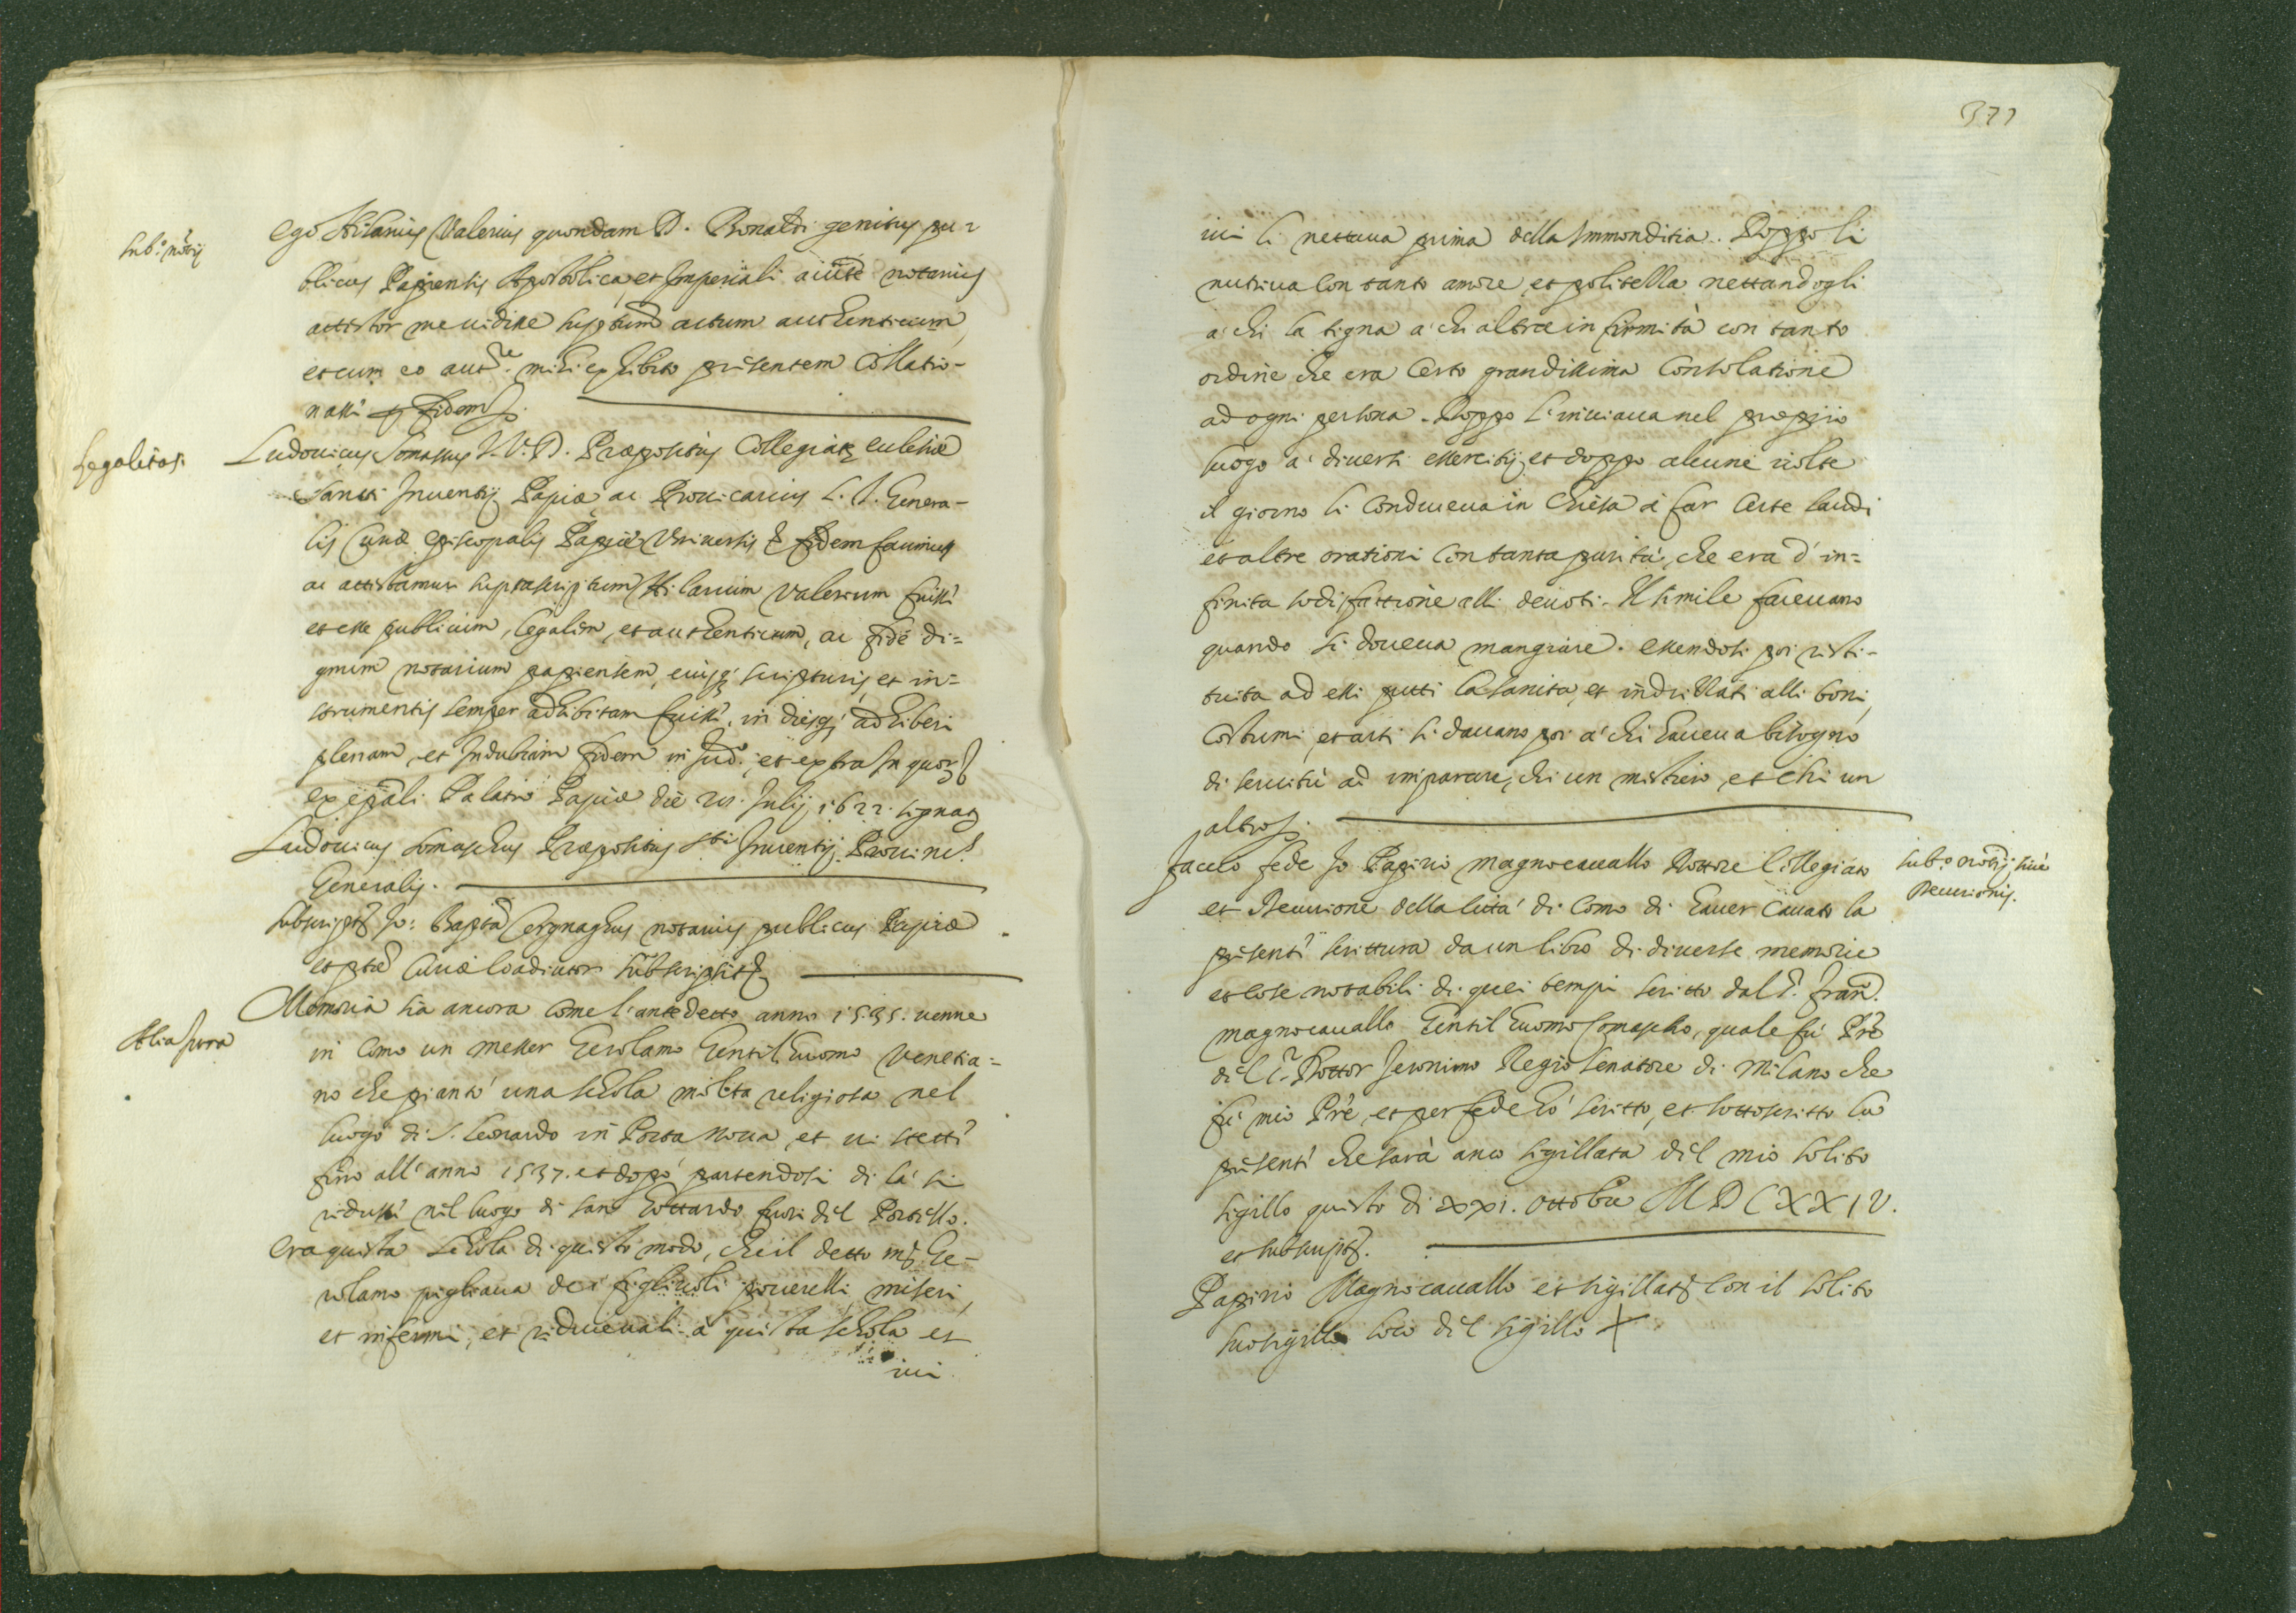 Sub.o notij
Ego Hilarius Valerius quondam D. Ronaldi genitus pu=
blicus Papiensis Apostolica, et Imperiali auctte notarius
attestor me uidisse supstum actum authenticum,
et cum eo aut.ce mihi exhibito presentem Collatio-
nasse fidem
Legalitas.
Ludouicus Somascus I. V. D. Præpositus Collegiatæ ecclesiæ
Sancti Iuuentij Papiæ ac Prouicarius C. S. Genera-
lis Curiæ episcopalis Papiæ Vniuersis & fidem facimus
ac attestamur suprascriptum Hilarium Valerium fuisse
et esse publicum, legalem, et authenticum, ac fide di=
gnum notarium papiensem, eiusq; scripturis, et in=
strumentis semper adhibitam fuisse, in diesq; adhiberi
plenam, et Indubiam fidem in Iud.o, et extra In quor
ex epāli Palatio Papiæ die 21. Iulij 1622. signat
Ludouicus Somaschus Præpositus Sti Iuuentij Prouic.s
Generalis.
subscript Jo: Bapta Cergnaghus notarius publicus Papiæ
et ptæ Curiæ Coadiutor Subscripsit
Alia scra
Memoria sia ancora come l'antedetto anno 1535. uenne
in Como un messer Gerolamo Gentil'huomo Venetia=
no che piantò una schola molta religiosa nel
luogo di S. Leonardo in Porta Noua, et ui stette
fino all'anno 1537. et dopò partendosi di là si
ridusse nel luogo di san Gottardo fuori del Portello.
Era questa schola di questo modo, che il detto ms. Ge-
rolamo pigliaua dei figliuoli pouerelli miseri,
et infermi, et riduceuali à questa schola et
iui
371
iui li nettaua prima della Immonditia. Doppo li
nutriua con tanto amore et politezza nettandogli
a chi la tigna a chi altra infirmità con tanto
ordine che era certo grandissima consolatione
ad ogni persona. Doppo l'inuiaua nel proprio
luogo a diuersi essercitij, et doppo alcune uolte
il giorno li conduceua in Chiesa à far certe laudi
et altre orationi con tanta purità, che era d'in=
finita sodisfattione alli deuoti. Il simile faceuano
quando si doueua mangiare. essendosi poi resti-
tuita ad essi putti la sanita, et indrizzati alli boni
costumi, et arti si dauano poi a chi haueua bisogno
di seruitù ad imparare, chi un mistiero, et chi un
altro.
Sub.o notij siue
Decurionis.
Faccio fede Io Papirio Magnocauallo Dottore Collegiato
et Decurione della Città di Como di hauer cauato la
presente scrittura da un libro di diuerse memorie
et cose notabili di quei tempi scritto dal S. Fran.
Magnocauallo Gentil'huomo Comascho, quale fù Pre
del S. Dottor Jeronimo Regio Senatore di Milano che
fù mio Pre, et per fede hò scritto, et sottoscritto la
presente che sarà anco sigillata del mio solito
sigillo questo di xxi. ottobre MDCXXIV.
et subscript.
Papirio Magnocauallo et sigillat con il solito
suo sigillo loco del sigillo +